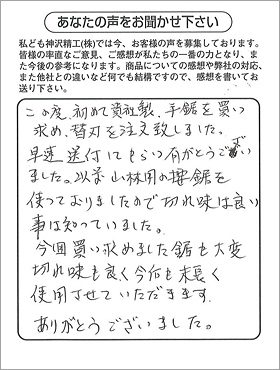 あなたの声をお聞かせ下さい
私ども神沢精工(株)では今、お客様の声を募集しております。
皆様の率直なご意見、ご感想が私たちの一番の力となり、ま
た今後の参考になります。商品についての感想や弊社の対応、
また他社との違いなど何でも結構ですので、感想を書いてお
送り下さい。
この度、初めて貴社製、手鋸を買い
求め、替刃を注文致しました。
早速送付にもらい有がとうござい
ました。以前山林用の手鋸を
使っておりましたので切れ味は良い
事は知っていました。
今回買い求めました鋸も大変
切れ味も良く今后も末長く
使用させていただきます。
ありがとうございました。